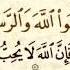 وا۟ ٱللَّهَ وَٱلرَّس
فَإِنَّ ٱللَّهَ لَا يُحِبُّ